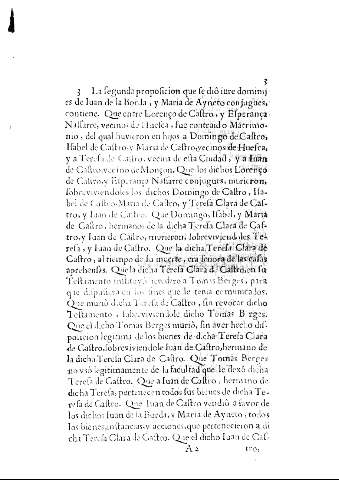 3
3 La segunda proposicion que se diò iure domini,
es de Iuan de la Borda, y Maria de Ayneto conjuges,
contiene. Que entre Lorenço de Castro, y Esperança
Nasarre, vecinos de Huesca, fue contraido Matrimo-
nio, del qual huvieron en hijos à Domingo de Castro,
Isabel de Castro, y Maria de Castro, vecinos de Huesca,
y a Teresa de Castro, vecina de esta Ciudad, y a Iuan
de Castro, vecino de Monçon. Que los dichos Lorenço
de Castro, y Esperança Nasarre conjuges, murieron,
sobreviviendoles los dichos Domingo de Castro, Isa-
bel de Castro, Maria de Castro, y Teresa Clara de Cas-
tro, y Iuan de Castro. Que Domingo, Isabel, y Maria
de Castro, hermanos de la dicha Teresa Clara de Cas-
tro, y Iuan de Castro, murieron, sobreviviendoles Te-
resa, y Iuan de Castro. Que la dicha Teresa Clara de
Castro, al tiempo de su muerte, era señora de las casas
aprehensas. Que la dicha Teresa Clara de Castro, en su
Testamento instituyò heredero a Tomas Berges, para
que dispusiera en los fines que le tenia comunicados.
Que muriò dicha Teresa de Castro, sin revocar dicho
Testamento, sobreviviendole dicho Tomàs Berges.
Que el dicho Tomas Berges muriò, sin aver hecho dis-
posicion legitima de los bienes de dicha Teresa Clara
de Castro, sobreviviendole Iuan de Castro, hermano de
la dicha Teresa Clara de Castro. Que Tomàs Berges
no vsò legitimamente de la facultad que le dexò dicha
Teresa de Castro. Que a Iuan de Castro, hermano de
dicha Teresa, pertenecen todos sus bienes de dicha Te-
resa de Castro. Que Iuan de Castro vendiò a favor de
los dichos Iuan de la Borda, y Maria de Ayneto, todos
los bienes, instancias, y acciones que pertenecieron a di-
cha Teresa Clara de Castro. Que el dicho Iuan de Cas-
A 2 tro,